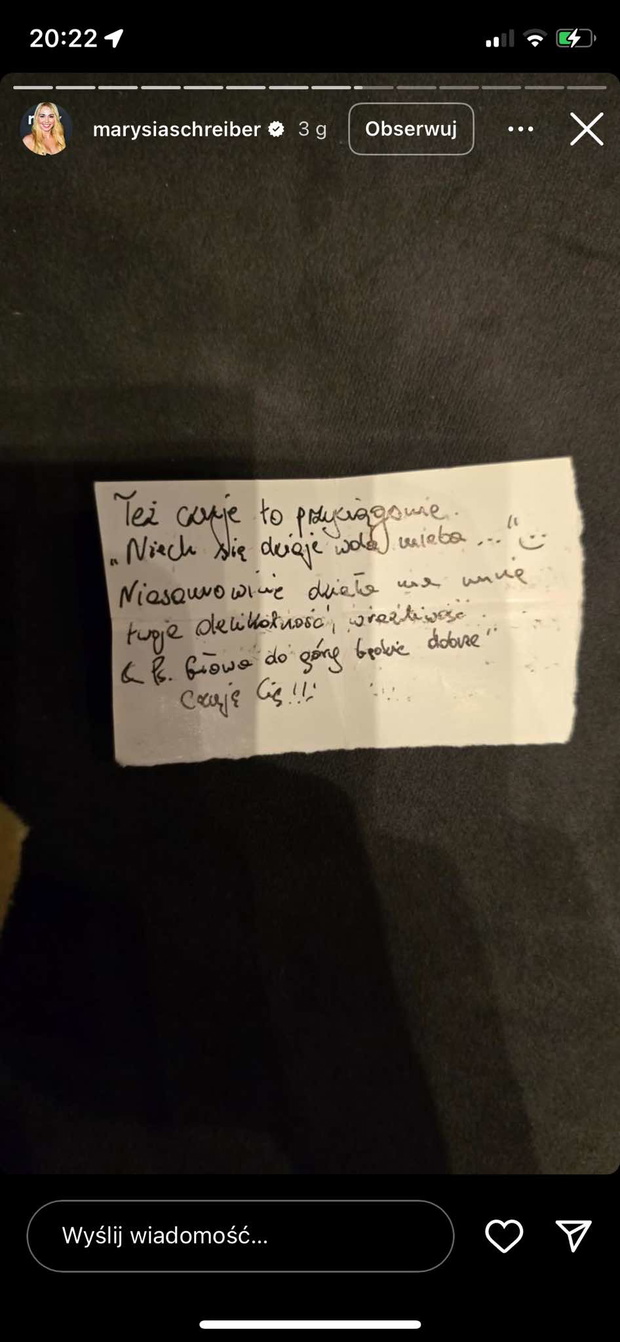 20:22
marysiaschreiber 3 g Obserwuj ...
Też czuje to przyciąganie.
„Niech się dzieje wola nieba ..."
Niesamowicie działa na mnie
twoja delikatność, wrażliwość.
Ps. Głowa do góry będzie dobrze"
Czuję Cię!!!
Wyślij wiadomość...